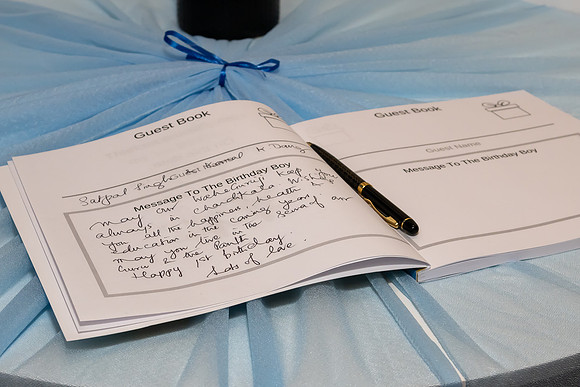 Guest Book
Satpal Singh
Message To The Birthday Boy
May our Waheguru ji keep you
always in chardhkala. Wish
you all the happiness, health &
education in the coming years.
May you live in the sewa of our
Guru & the Panth
Happy 1st birthday.
Lots of love
Guest Book
Guest Name
Message To The Birthday Boy